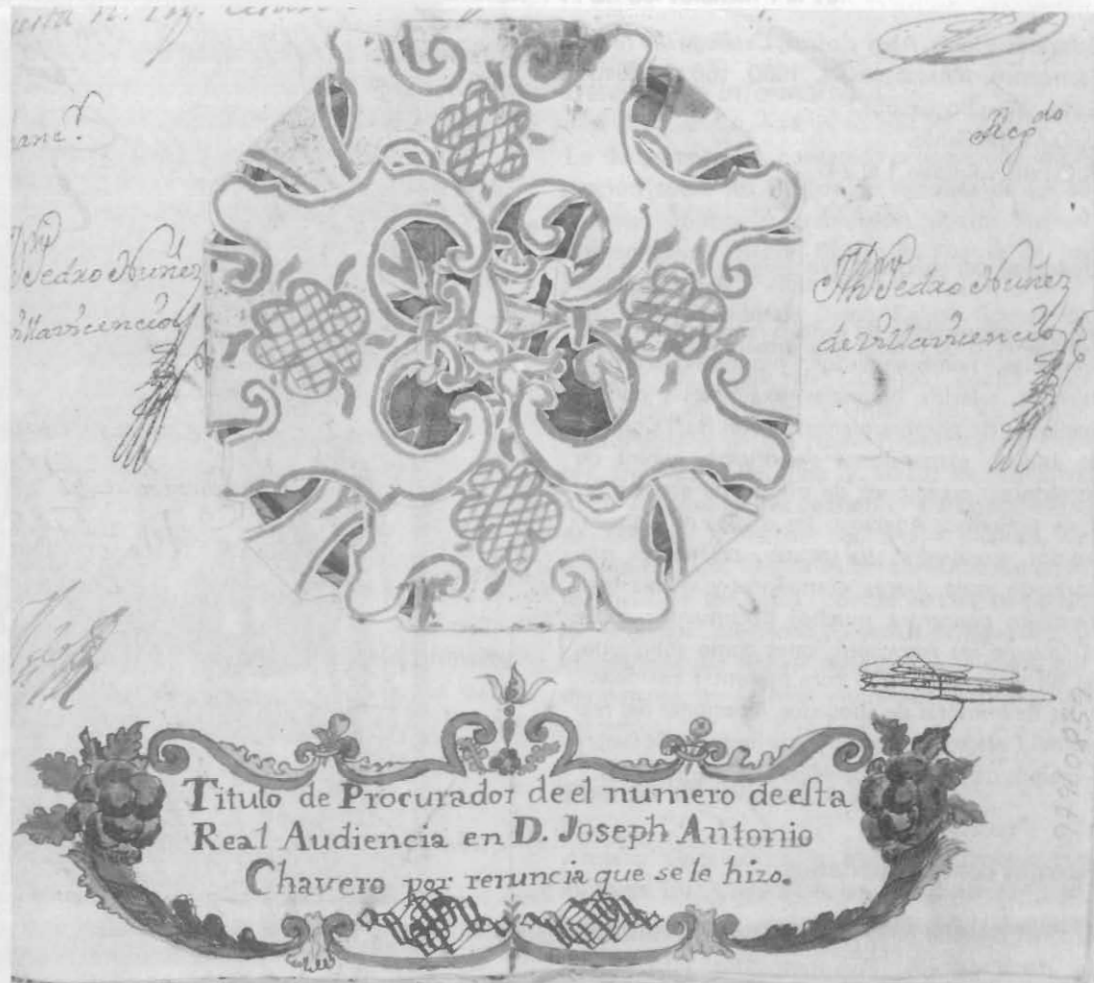 Reg.do
Pedro Nuñez
Pedro Nuñez
de Villavicencio
Titulo de Procurador de el numero de esta
Real Audiencia en D. Joseph Antonio
Chavero por renuncia que se le hizo.